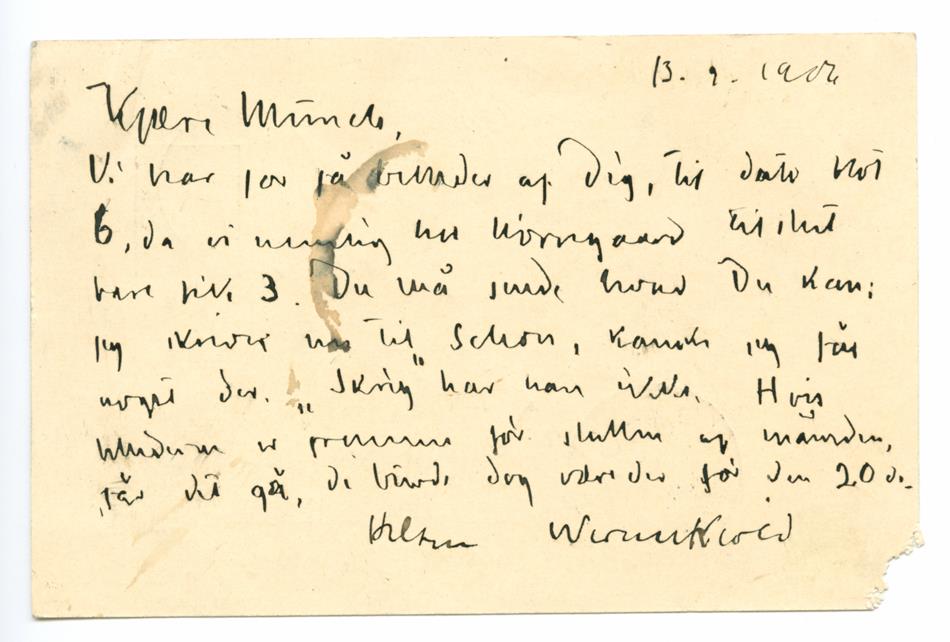 13. 9. 1904
Kjære Munch,
Vi har for få billeder af Dig, til dato blot
6, da vi nemlig hos Horngaard tilslut
bare fik 3. Du må sende hvad Du kan;
jeg skriver nu til Schou, kanske jeg får
noget der. „Skrig" har han ikke. Hvis
billederne er fremme før slutten af måneden,
får det gå, de burde dog være der før den 20de.
Hilsen Werenskiold